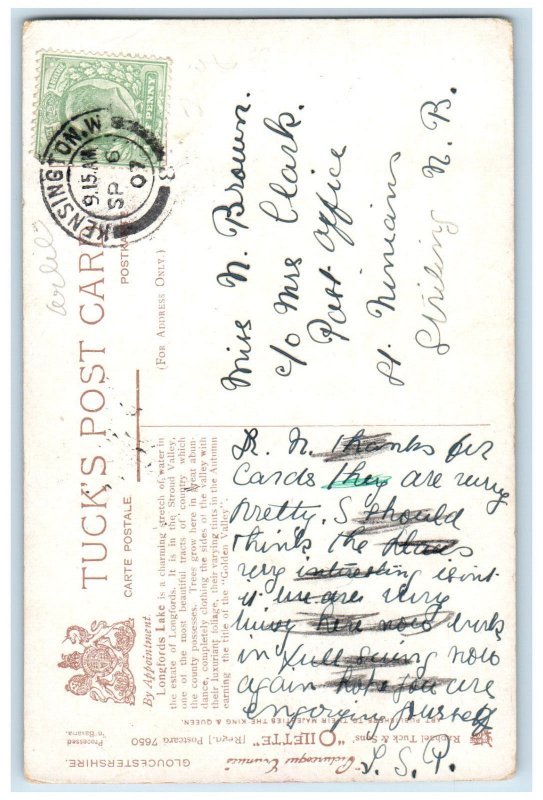 TUCK'S POST CARD
CARTE POSTALE
POSTKARTE
(FOR ADDRESS ONLY.)
KENSINGTON. W.
9.15 AM
SP 6
07
By Appointment.
Longfords Lake is a charming stretch of water in
the estate of Longfords. It is in the Stroud Valley,
one of the most beautiful tracts of country which
the county possesses. Trees grow here in great abun-
dance, completely clothing the sides of the valley with
their luxuriant foliage, their varying tints in the Autumn
earning the title of the "Golden Valley".
Miss N. Brown.
c/o Mrs Clark.
Post Office
St. Ninians
Stirling N. B.
D. N. thanks for
cards they are very
pretty. I should
think the
very interesting isint
it we are very
busy here now work
in full swing now
again hope you are
enjoying yourself
L. S. P.
Raphael Tuck & Sons' "OILETTE" [Regd.] Postcard 7650
ART PUBLISHERS TO THEIR MAJESTIES THE KING & QUEEN.
GLOUCESTERSHIRE.
"Picturesque Counties"
Processed
in Bavaria.